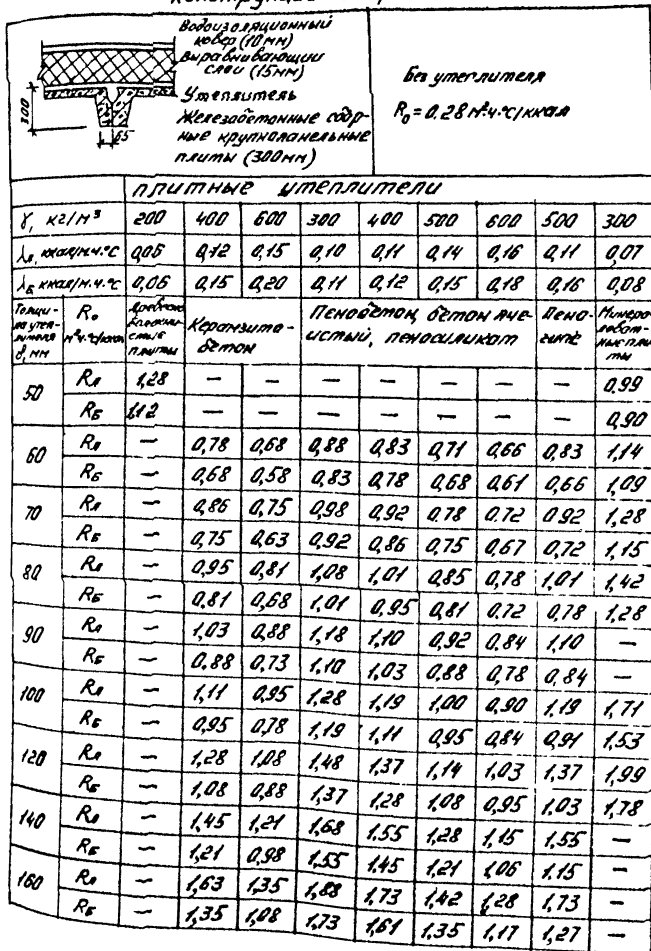 Водоизоляционный
ковер (10 мм)
Выравнивающий
слой (15мм)
Утеплитель
Железобетонные сбор-
ные крупнопанельные
плиты (300мм)
300
65
Без утеплителя
R₀ = 0.28 м².ч.°С/ккал
плитные утеплители
γ, кг/м³ 200 400 600 300 400 500 600 500 300
λА, ккал/м.ч.°С 0,06 0,12 0,15 0,10 0,11 0,14 0,16 0,11 0,07
λБ ккал/м.ч.°С 0,06 0,15 0,20 0,11 0,12 0,15 0,18 0,16 0,08
Толщи-
на утеп-
лителя
δ, мм
R₀
м².ч.°С/ккал
плиты
Керамзито-
бетон
Пенобетон, бетон яче-
истый, пеносиликат
Минера-
ловат-
ные пли-
ты
50 RА 1,28 — — — — — — — 0,99
RБ 1,12 — — — — — — — 0,90
60 RА — 0,78 0,68 0,88 0,83 0,71 0,66 0,83 1,14
RБ — 0,68 0,58 0,83 0,78 0,68 0,61 0,66 1,09
70 RА — 0,86 0,75 0,98 0,92 0,78 0,72 0,92 1,28
RБ — 0,75 0,63 0,92 0,86 0,75 0,67 0,72 1,15
80 RА — 0,95 0,81 1,08 1,01 0,85 0,78 1,01 1,42
RБ — 0,81 0,68 1,01 0,95 0,81 0,72 0,78 1,28
90 RА — 1,03 0,88 1,18 1,10 0,92 0,84 1,10 —
RБ — 0,88 0,73 1,10 1,03 0,88 0,78 0,84 —
100 RА — 1,11 0,95 1,28 1,19 1,00 0,90 1,19 1,71
RБ — 0,95 0,78 1,19 1,11 0,95 0,84 0,91 1,53
120 RА — 1,28 1,08 1,48 1,37 1,14 1,03 1,37 1,99
RБ — 1,08 0,88 1,37 1,28 1,08 0,95 1,03 1,78
140 RА — 1,45 1,21 1,68 1.55 1,28 1,15 1,55 —
RБ — 1,21 0,98 1.55 1,45 1,21 1,06 1.15 —
160 RА — 1,63 1,35 1,88 1,73 1,42 1,28 1,73 —
RБ — 1,35 1,08 1,73 1,61 1.35 1,17 1,27 —